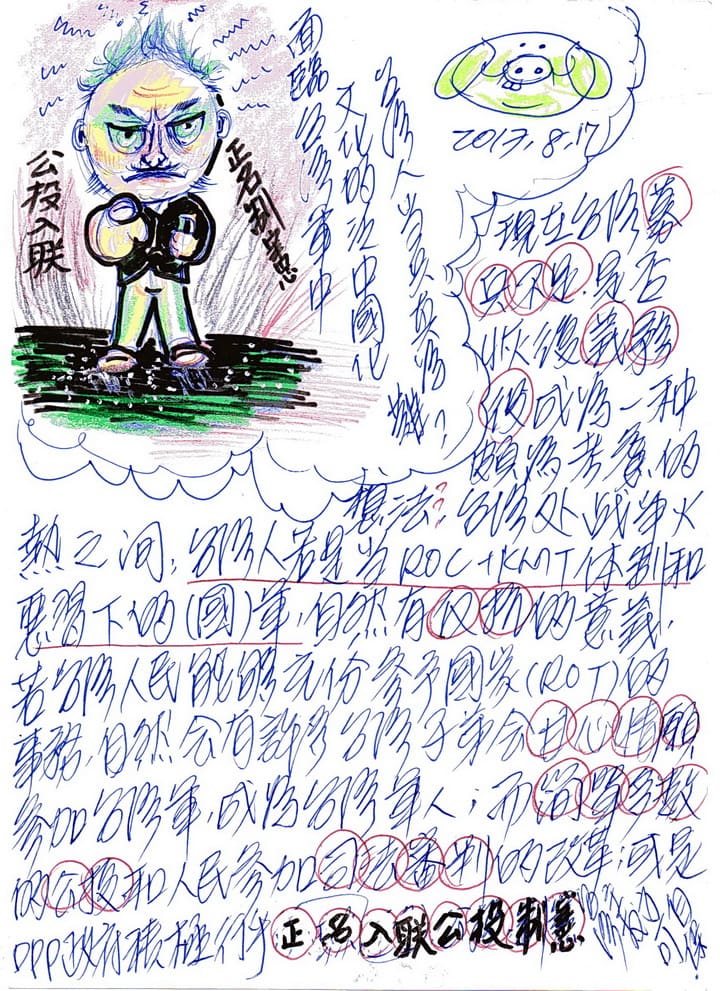 2017.8.17
公投入联
正名制憲
面臨台灣軍中
文化的泛中國化
台灣人当兵真為難?
現在台灣募
兵不足,是否
恢復義務
役成為一种
頗為考慮的
想法?台灣处战争火
熱之间,台灣人若是当ROC+KMT体制和
惡習下的(國)軍,自然有反抗的意義,
若台灣人民能够充份參予國家(ROT)的
事務,自然会有許多台灣子弟会甘心情願
參加台灣軍,成為台灣軍人;而簡單多数
的公投和人民參加司法審判的改革;或是
DPP政府積極行使正名入联公投制憲